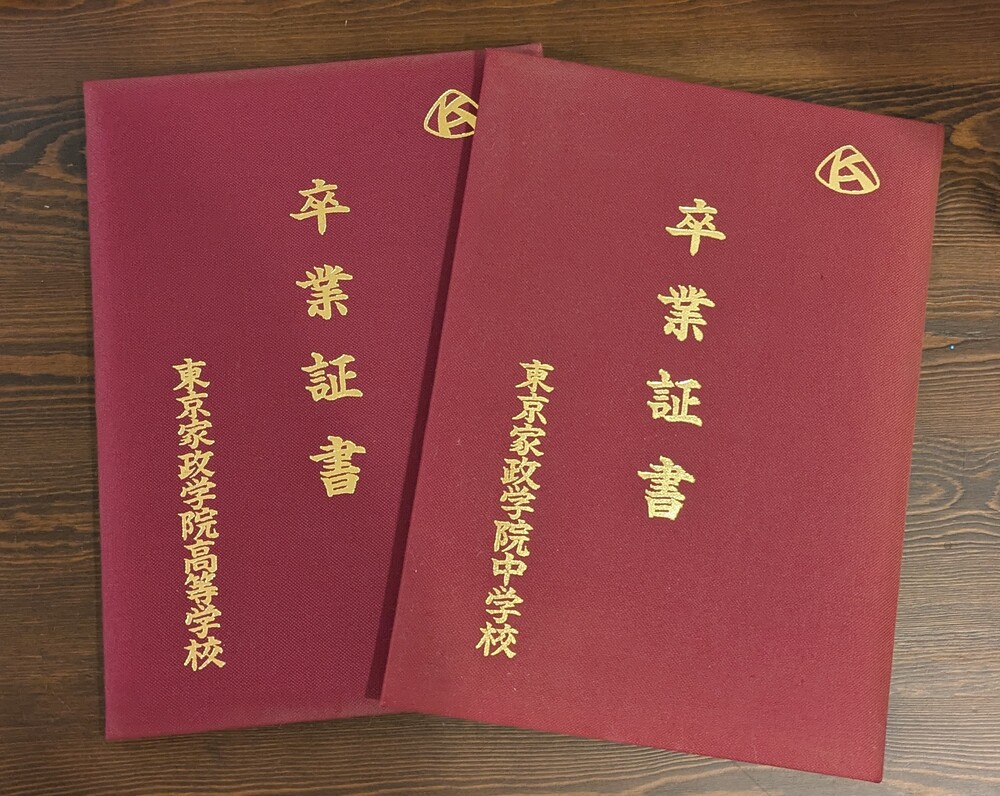 卒業証書
東京家政学院高等学校
卒業証書
東京家政学院中学校